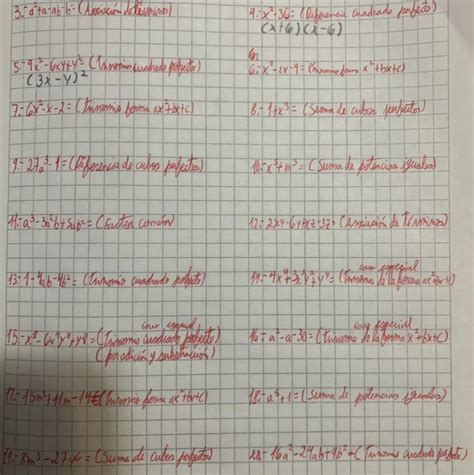 3.- a²+a-ab-b= (Asociación de términos)
4.- x²-36= (Diferencia cuadrado perfecto)
(x+6)(x-6)
5.- 9x²-6xy+y²= (Trinomio cuadrado perfecto)
(3x-y)²
6.- x²-2x-4= (Trinomio forma x²+bx+c)
7.- 6x²-x-2= (Trinomio forma ax²+bx+c)
8.- 1+x³= (Suma de cubos perfectos)
9.- 27a³-1= (Diferencia de cubos perfectos)
10.- x⁵+m⁵= (Suma de potencias iguales)
11.- a³-3a²b+5ab²= (Factor común)
12.- 2xy-6y+xz-3z= (Asociación de Términos)
13.- 1-4ab-4b²= (Trinomio cuadrado perfecto)
caso especial
14.- 4x⁴+3x²y²+y⁴= (Trinomio de la forma ax²+bx+c)
caso especial
15.- x⁸-6x⁴y⁴+y⁸= (Trinomio cuadrado perfecto)
(por adición y substracción)
caso especial
16.- a²-a-30= (Trinomio de la forma x²+bx+c)
17.- 15m²+11m-14= (Trinomio forma ax²+bx+c)
18.- a⁵+1= (Suma de potencias iguales)
19.- 8m³-27y⁶= (Suma de cubos perfectos)
20.- 16a²-24ab+9b²= (Trinomio cuadrado perfecto)